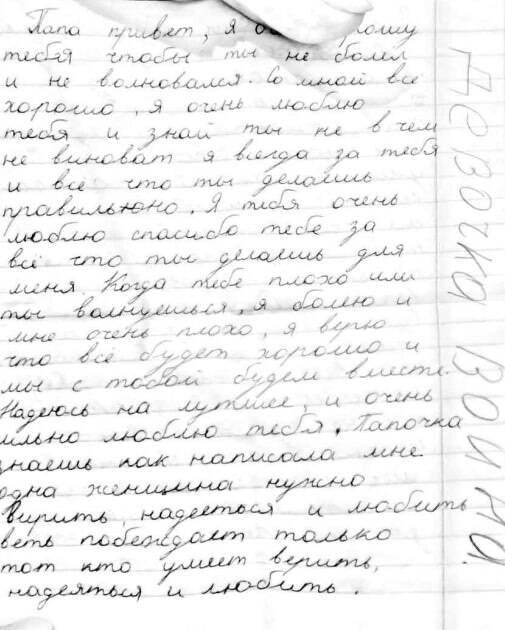 Папа привет, я прошу
тебя чтобы ты не болел
и не волновался. Со мной всё
хорошо, я очень люблю
тебя и знай ты не в чем
не виноват я всегда за тебя
и всё что ты делаешь
правильно. Я тебя очень
люблю спасибо тебе за
всё что ты делаешь для
меня. Когда тебе плохо или
ты волнуешься, я болею и
мне очень плохо, я верю
что всё будет хорошо и
мы с тобой будем вместе.
Надеюсь на лутшее, и очень
ильно люблю тебя. Папочка
знаешь как написала мне
одна женщина нужно
вирить, надееться и любить
веть побеждает только
тот кто умеет верить,
надеяться и любить.
девочка война